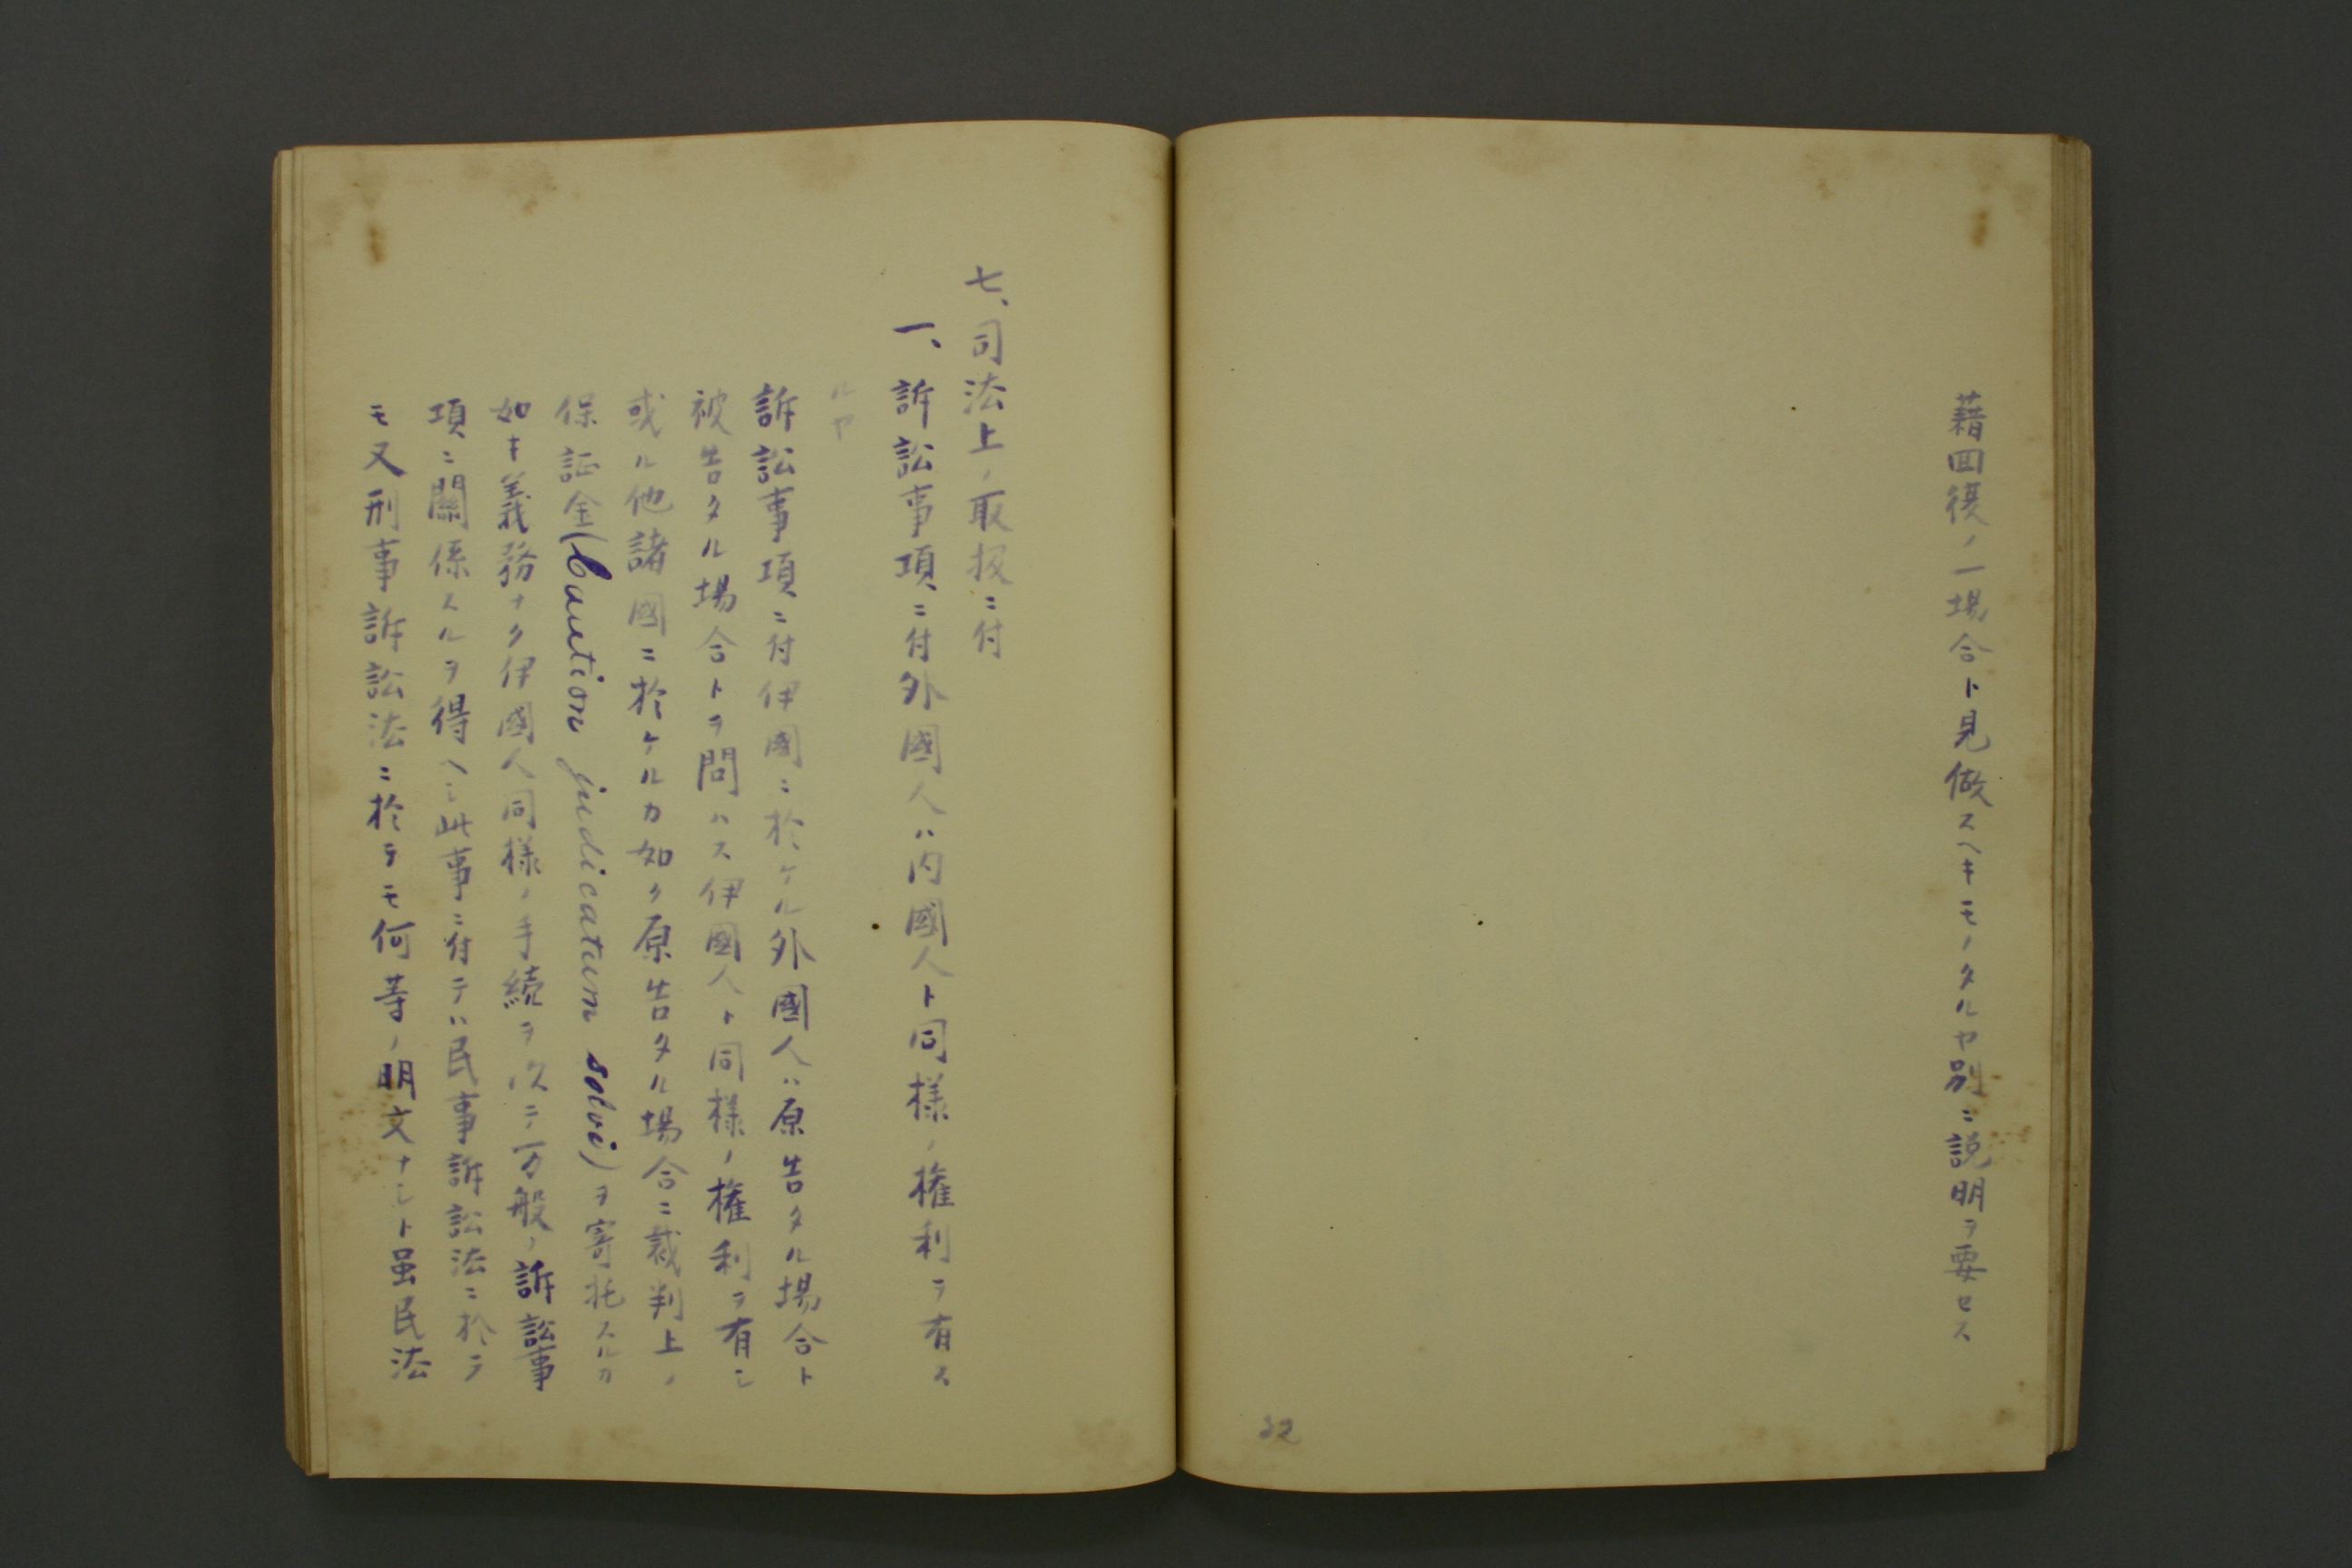 藉回復ノ一場合ト見做スヘキモノタルヤ別ニ説明ヲ要セス
32
七、司法上ノ取扱ニ付
一、訴訟事項ニ付外國人ハ内國人ト同様ノ権利ヲ有ス
ルヤ
訴訟事項ニ付伊國ニ於ケル外國人ハ原告タル場合ト
被告タル場合トヲ問ハス伊國人ト同様ノ権利ヲ有シ
或ル他諸國ニ於ケルカ如ク原告タル場合ニ裁判上ノ
保証金(Caution judicatum solvi)ヲ寄托スルカ
如キ義務ナク伊國人同様ノ手続ヲ以テ万般ノ訴訟事
項ニ關係スルヲ得ヘシ此事ニ付テハ民事訴訟法ニ於テ
モ又刑事訴訟法ニ於テモ何等ノ明文ナシト虽民法